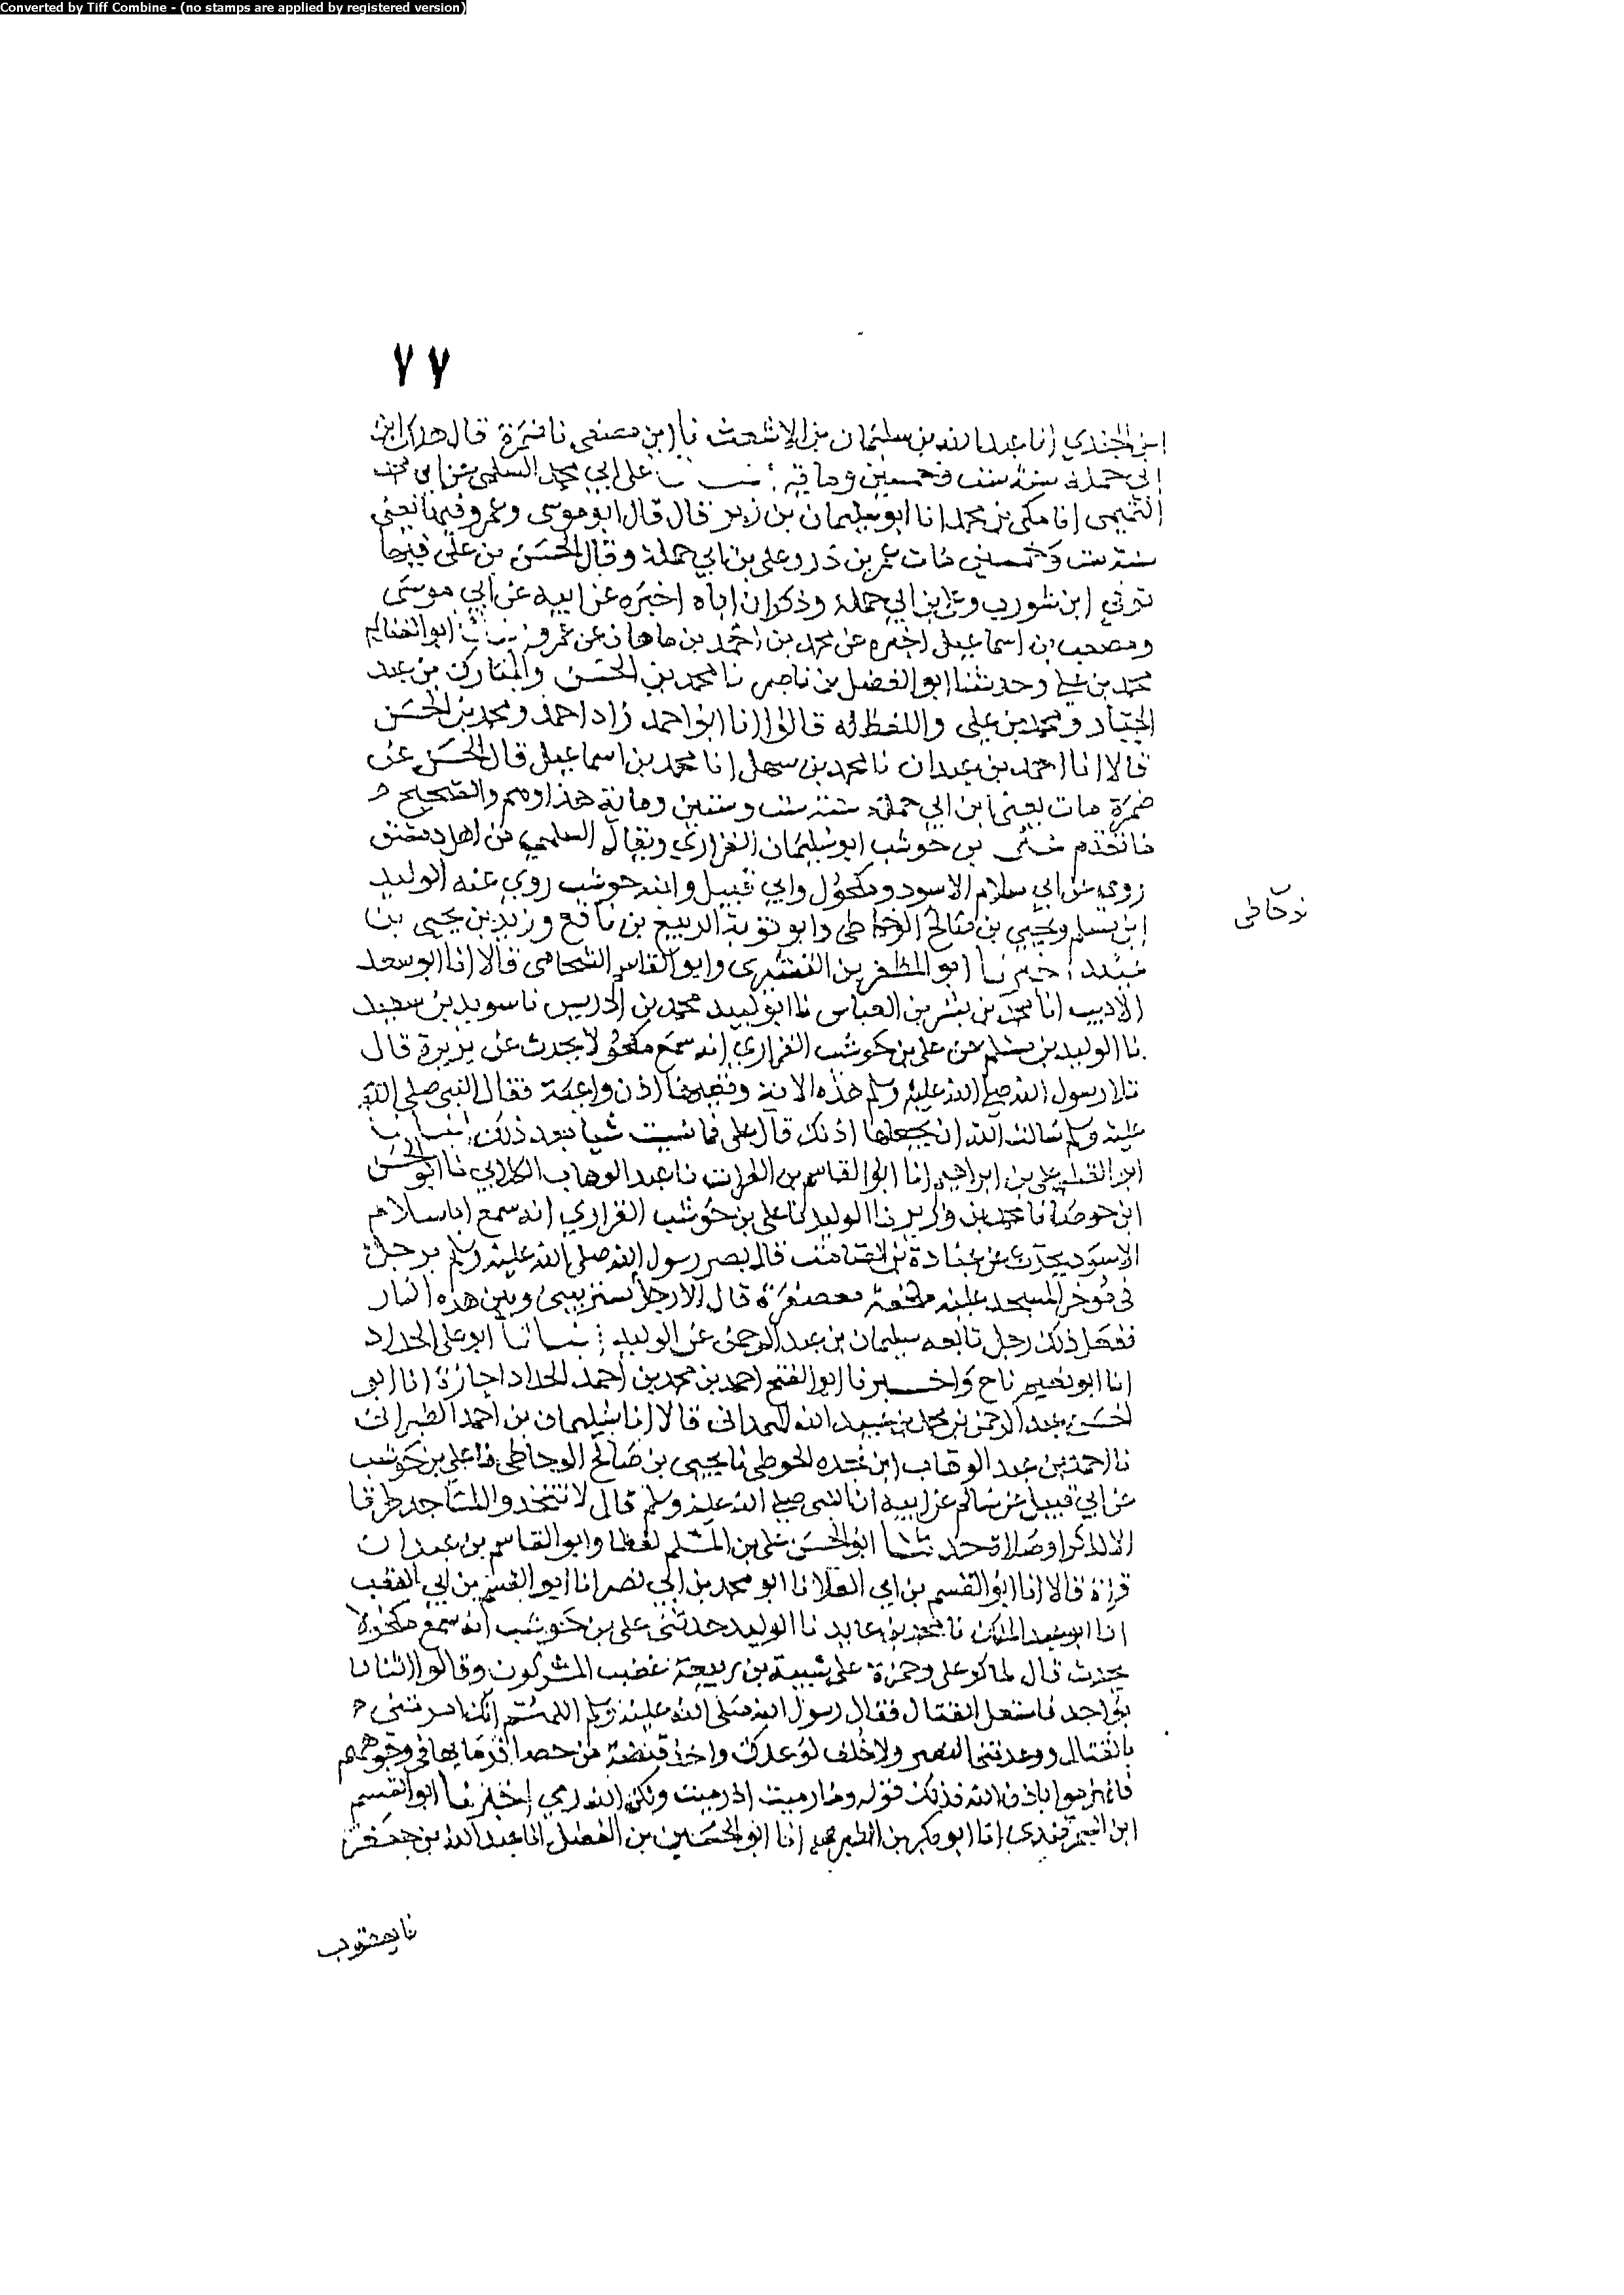 Converted by Tiff Combine - (no stamps are applied by registered version)
٧٧
ابن الجندي انا عبد الله بن سليمان بن الاشعث نا ابن مصفى نا ضمرة قال هلك ابن
ابي حملة سنة ست وخمسين وماية على ابي محمد السلمي عن ابي محمد
التميمي انا مكي بن محمد انا ابو سليمان بن زبر قال قال ابو موسى وعمرو فيها يعني
سنة ست وخمسين مات عمر بن ذر وعلي بن ابي حملة وقال الحسن بن علي فيها
توفي ابن شوذب وعلي بن ابي حملة وذكر ان اباه اخبره عن ابيه عن ابي موسى
ومصعب بن اسماعيل اخبره عن محمد بن احمد بن ماهان عن عمرو ابو الغنايم
محمد بن علي وحدثنا ابو الفضل بن ناصر نا محمد بن الحسن والمبارك بن عبد
الجبار ومحمد بن علي واللفظ له قالوا انا ابو احمد زاد احمد ومحمد بن الحسن
قالا انا احمد بن عبدان نا محمد بن سهل انا محمد بن اسماعيل قال الحسن عن
ضمرة مات يعني ابن ابي حملة سنة ست وستين وماية هذا وهم والصحيح
ما تقدم علي بن حوشب ابو سليمان الفزاري ويقال السلمي من اهل دمشق
روى عن ابي سلام الاسود ومكحول وابي قبيل وابنه حوشب روى عنه الوليد
ابن مسلم ويحيى بن صالح الوحاظي وابو توبة الربيع بن نافع وزيد بن يحيى بن
عبيد اخبرنا ابو المظفر بن القشيري وابو القاسم الشحامي قالا انا ابو سعد
الاديب انا محمد بن بشر بن العباس نا ابو لبيد محمد بن ادريس نا سويد بن سعيد
نا الوليد بن مسلم عن علي بن حوشب الفزاري انه سمع مكحولا يحدث عن بريرة قال
تلا رسول الله صلى الله عليه وسلم هذه الاية وتعيها اذن واعية فقال النبي صلى الله
عليه وسلم سالت الله ان يجعلها اذنك قال علي فما نسيت شيا بعد ذلك انبانا
ابو القسم علي بن ابراهيم انا ابو القاسم بن الفرات نا عبد الوهاب الكلابي نا ابو الحسن
ابن جوصا نا محمد بن وزير نا الوليد نا علي بن حوشب الفزاري انه سمع ابا سلام
الاسود يحدث عن عبادة بن الصامت قال بصر رسول الله صلى الله عليه وسلم برجل
في موخر المسجد عليه ملحفة معصفرة قال الا رجل يستر بيني وبين هذه النار
ففعل ذلك رجل تابعه سليمان بن عبد الرحمن عن الوليد انبانا ابو علي الحداد
انا ابو نعيم نا ح واخبرنا ابو الفتح احمد بن محمد بن احمد الحداد اجازة انا ابو
الحسن عبد الرحمن بن محمد بن عبيد الله الهمداني قالا انا سليمان بن احمد الطبراني
نا احمد بن عبد الوهاب ابن نجده الحوطي نا يحيى بن صالح الوحاظي نا علي بن حوشب
عن ابي قبيل عن سالم عن ابيه ان النبي صلى الله عليه وسلم قال لا تتخذوا المساجد طرقا
الا لذكر او صلاة حدثنا ابو الحسن علي بن المسلم لفظا وابو القاسم بن عبدان
قراة قالا انا ابو القسم بن ابي العلا انا ابو محمد بن ابي نصر انا ابو القسم بن ابي العقب
انا ابو عبد الملك نا محمد بن عايد نا الوليد حدثني علي بن حوشب انه سمع مكحولا
يحدث قال لما كر علي وحمزة على شيبة بن ربيعة غضب المشركون وقالوا اثنان
بواحد فاشتعل القتال فقال رسول الله صلى الله عليه وسلم اللهم انك امرتني
بالقتال ووعدتني النصر ولا خلف لوعدك واخذ قبضة من حصا فرما بها في وجوههم
فانهزموا باذن الله فذلك قوله وما رميت اذ رميت ولكن الله رمى اخبرنا ابو القسم
ابن السمرقندي انا ابو بكر بن الطبري انا ابو الحسين بن الفضل انا عبد الله بن جعفر
نا يعقوب